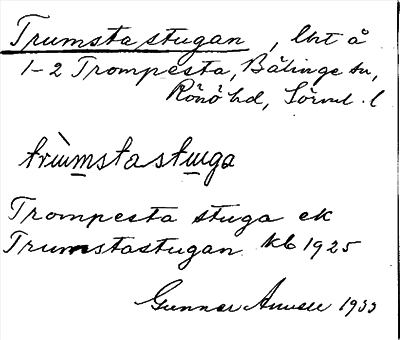 Trumstastugan, lht å
1-2 Trompesta, Bälinge sn,
Rönö hd, Sörml. l
trùmstastuga
Trompesta stuga ek
Trumstastugan kb 1925
Gunnar 1933